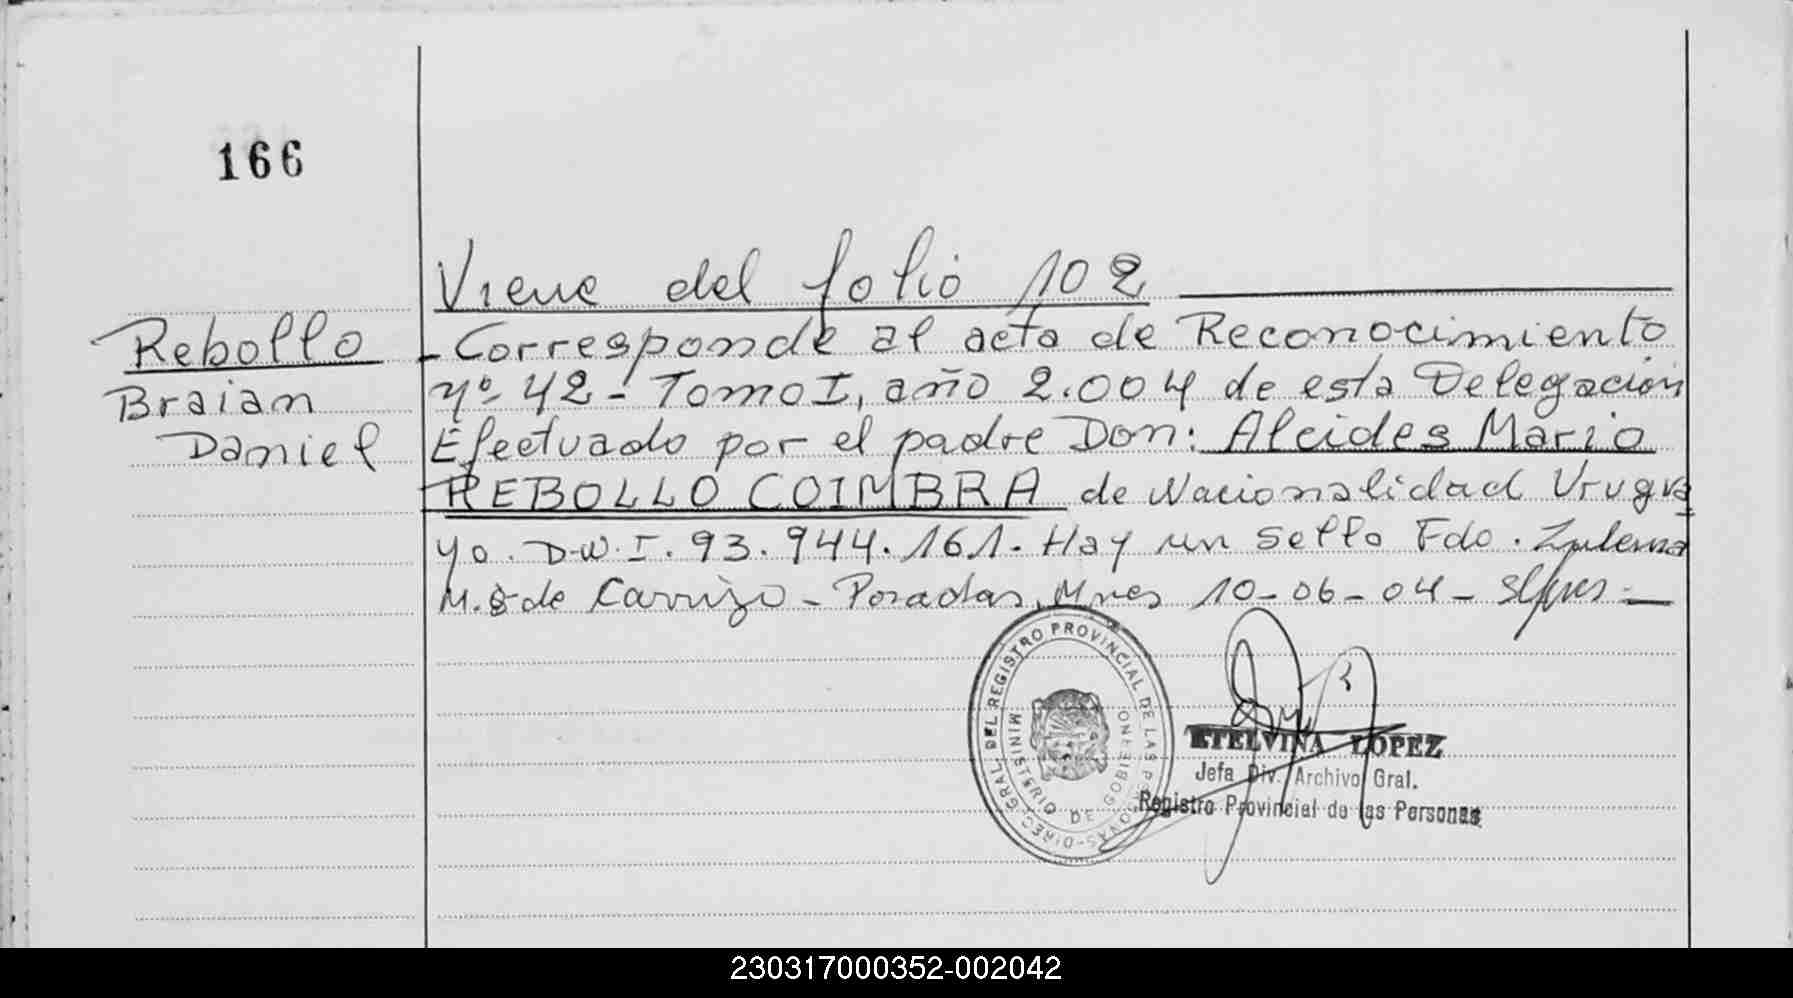 166
Viene del folio 102
Rebollo
Braian
Daniel
- Corresponde al acta de Reconocimiento
Nº 42 - Tomo I, año 2.004 de esta Delegación
Efectuado por el padre Don: Alcides Mario
REBOLLO COIMBRA de Nacionalidad Urugua
yo. D.N.I. 93.944.161. Hay un Sello Fdo. Zulema
M. de Carrizo - Posadas, Mnes 10-06-04-
DIREC. GRAL. DEL REGISTRO PROVINCIAL DE LAS PERSONAS
MINISTERIO DE GOBIERNO
ETELVINA LOPEZ
Jefa Div. Archivo Gral.
Registro Provincial de las Personas
230317000352-002042